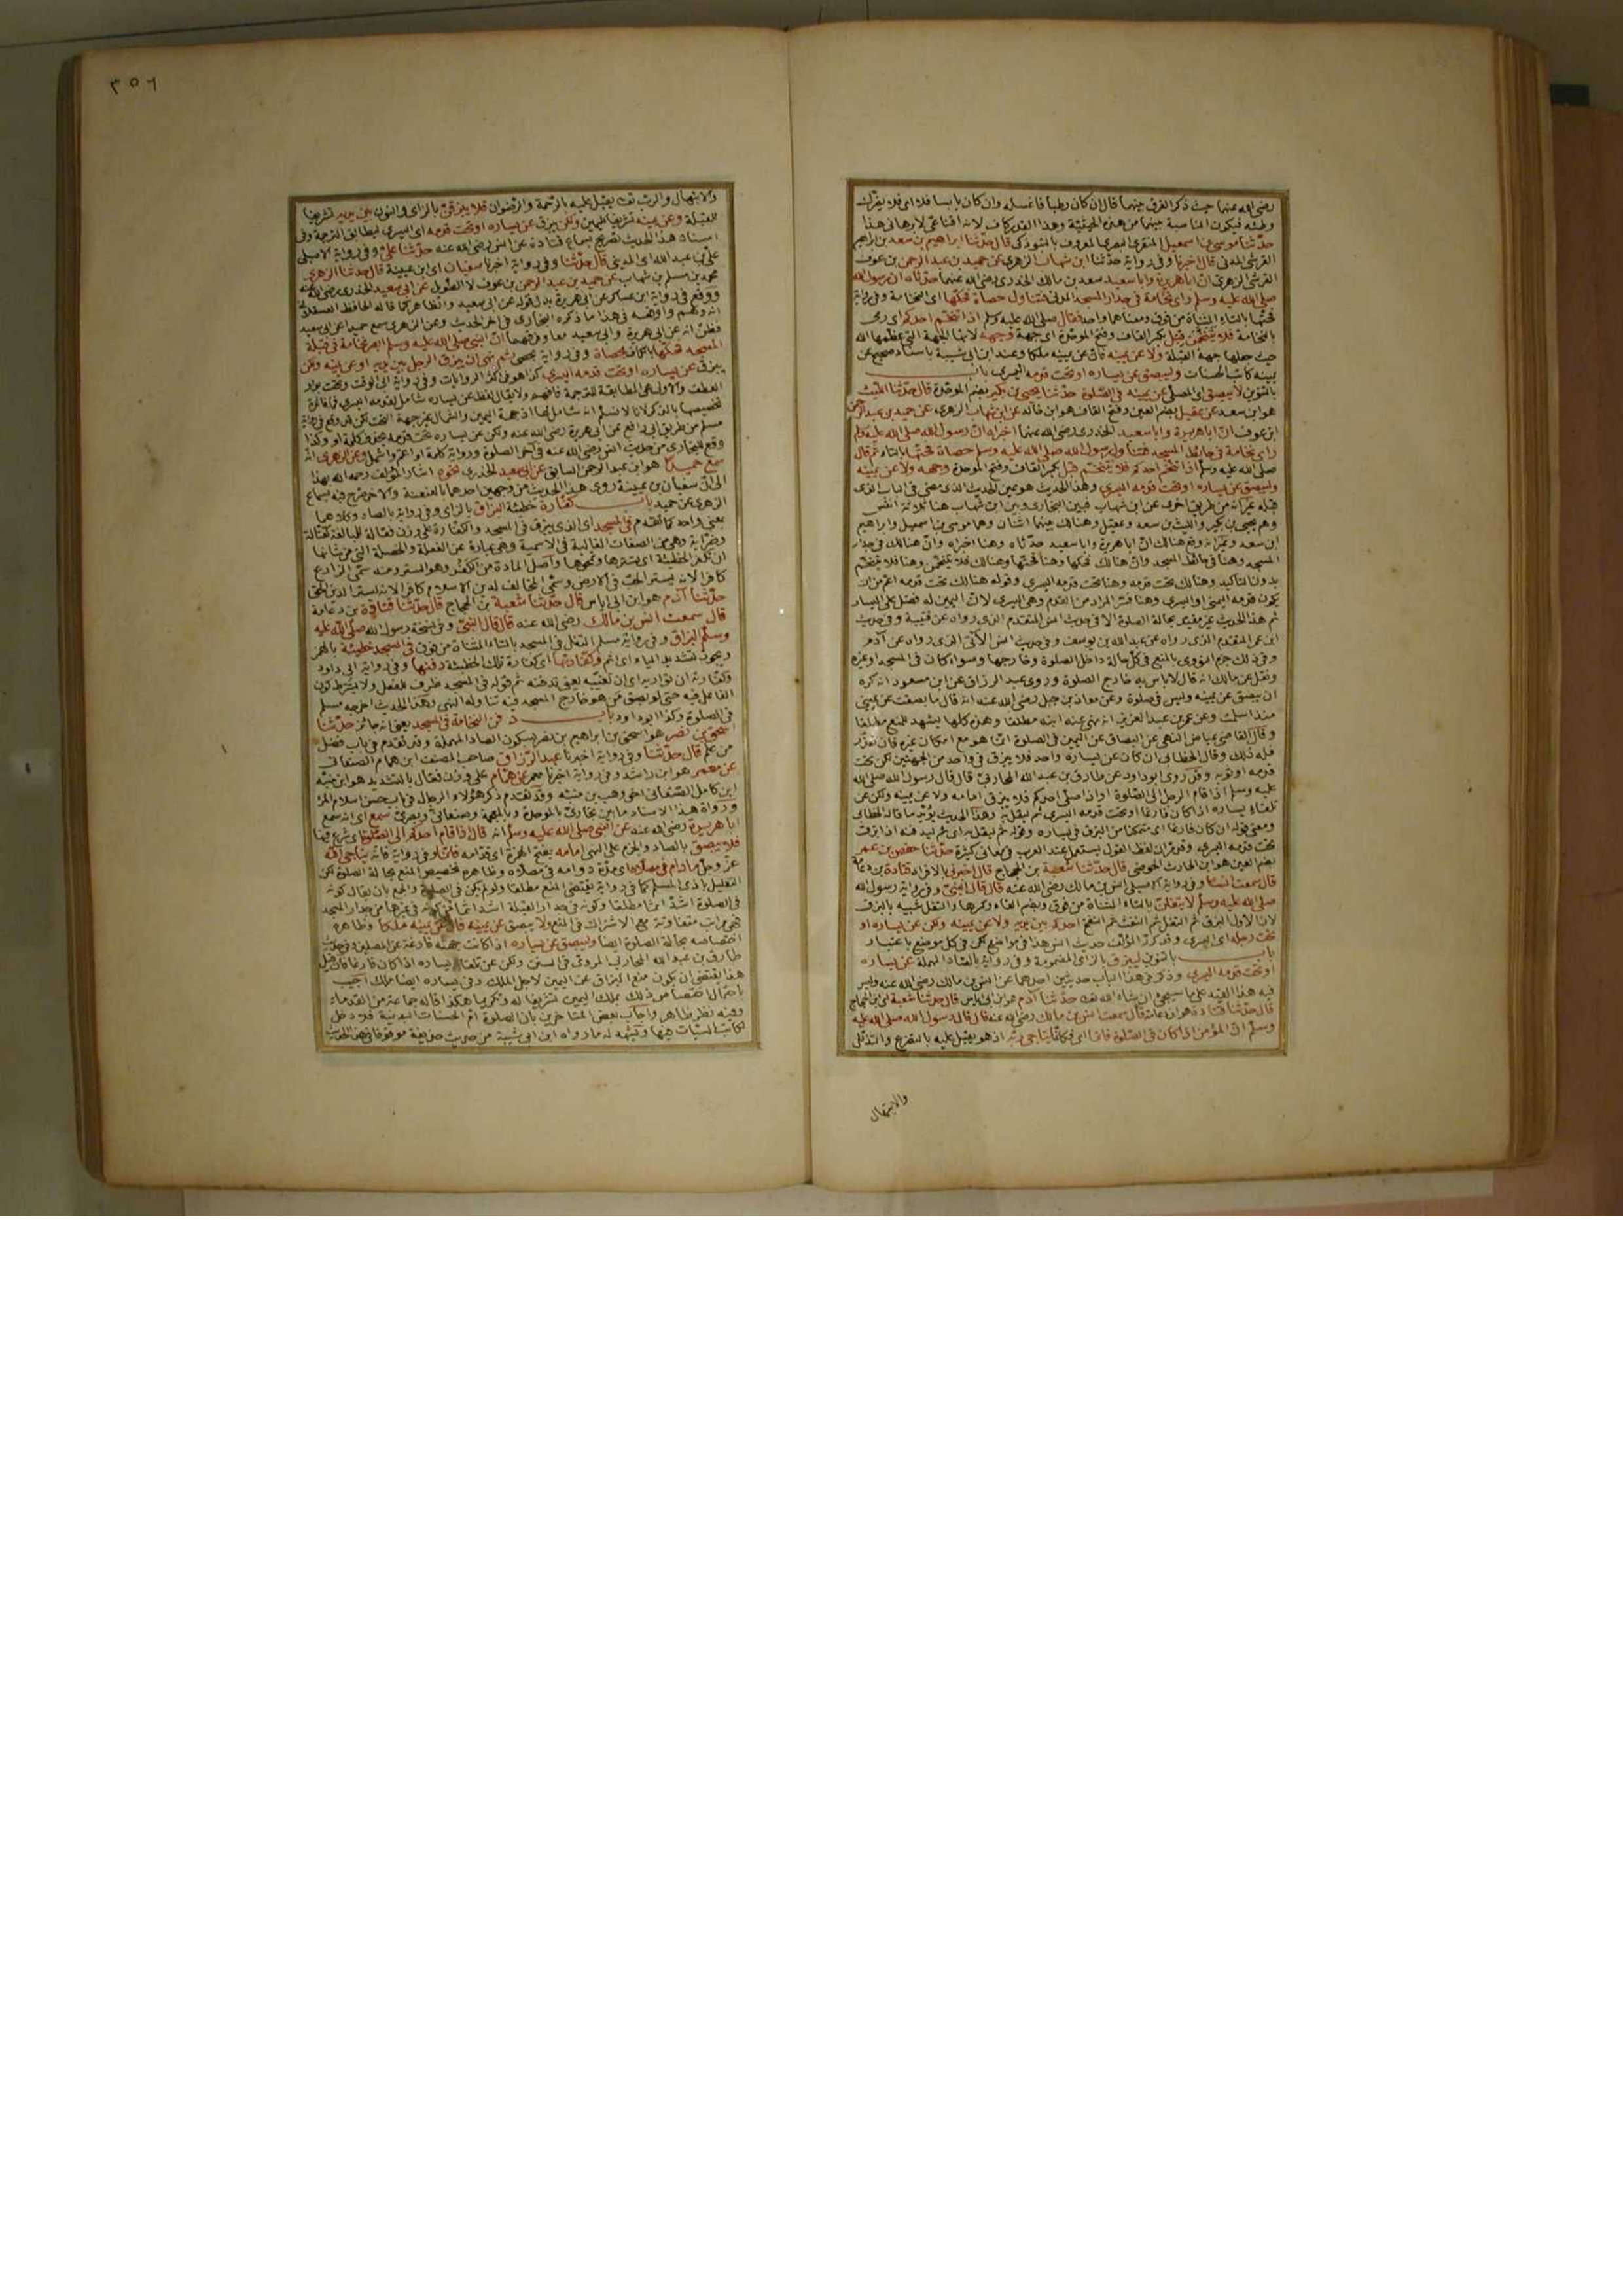 رضى الله عنهما حيث ذكر الفرق بينهما قال ان كان رطبا فاغسله وان كان يابسا فلا اى فلا يضرك
وطئه فيكون المناسبة بينهما من هذه الحيثية وهذا القدر كاف لانه اقناعى لا برهانى هذا
حدّثنا موسى بن اسمعيل المنقرى البصرى المعروف بالتبوذكى قال حدّثنا ابراهيم بن سعد بن ابراهيم
القرشى المدنى قال اخبرنا وفى رواية حدّثنا ابن شهاب الزهرى عن حميد بن عبد الرحمن بن عوف
القرشى الزهرى انّ ابا هريرة وابا سعيد سعد بن مالك الخدرى رضى الله عنهما حدّثاه ان رسول الله
صلى الله عليه وسلم راى نخامة فى جدار المسجد المدنى فتناول حصاة فحكّها اى النخامة وفى رواية
فحتّها بالتاء المثناة من فوق ومعناهما واحد فقال صلى الله عليه وسلم اذا تنخّم احدكم اى رمى
بالنخامة فلا يتنخّمنّ قبل بكسر القاف وفتح الموحّدة اى جهة وجهه لانها الجهة التى عظمها الله
حيث جعلها جهة القبلة ولا عن يمينه فان عن يمينه ملكا وعند ابن ابى شيبة باسناد صحيح عن
يمينه كاتب الحسنات وليبصق عن يساره او تحت قدمه اليسرى باب
بالتنوين لا يبصق اى المصلّى عن يمينه فى الصّلوة حدّثنا يحيى بن بكير بضم الموحّدة قال حدّثنا الليث
هو ابن سعد عن عقيل بضم العين وفتح القاف هو ابن خالد عن ابن شهاب الزهرى عن حميد بن عبد الرحمن
ابن عوف انّ ابا هريرة وابا سعيد الخدرى رضى الله عنهما اخبراه انّ رسول الله صلى الله عليه وسلم
راى نخامة فى حائط المسجد فتناول رسول الله صلى الله عليه وسلم حصاة فحتّها بالتاء ثم قال
صلى الله عليه وسلم اذا تنخم احدكم فلا يتنخّم قبل بكسر القاف وفتح الموحدة وجهه ولا عن يمينه
وليبصق عن يساره او تحت قدمه اليسرى وهذا الحديث هو عين الحديث الذى مضى فى الباب الذى
قبله غير انه من طريق اخرى عن ابن شهاب فبين البخارى وبين ابن شهاب هنا ثلاثة انفس
وهم يحيى بن بكير والليث بن سعد وعقيل وهنالك بينهما اثنان وهما موسى بن اسمعيل وابراهيم
ابن سعد وغير انه وقع هنالك انّ ابا هريرة وابا سعيد حدّثاه وهنا اخبراه وانّ هنالك فى جدار
المسجد وهنا فى حائط المسجد وانّ هنالك فحكّها وهنا فحتّها وهنالك فلا يتنخّمنّ وهنا فلا يتنخّم
بدون التأكيد وهنالك تحت قدمه وهنا تحت قدمه اليسرى وقوله هنالك تحت قدمه اعمّ من ان
يكون قدمه اليمنى او اليسرى وهنا فسّر المراد من القدم وهى اليسرى لانّ اليمين له فضل على اليسار
ثم هذا الحديث غير مقيّد بحالة الصلوة الا فى حديث انس المتقدم الذى رواه عن قتيبة وفى حديث
ابن عمر المتقدم الذى رواه عن عبد الله بن يوسف وفى حديث انس الآتى الذى رواه عن آدم
وفى ذلك جزم النووى بالمنع فى كلّ حالة داخل الصلوة وخارجها وسواء كان فى المسجد او غيره
ونقل عن مالك انه قال لا باس به خارج الصلوة وروى عبد الرزاق عن ابن مسعود انه كره
ان يبصق عن يمينه وليس فى صلوة وعن معاذ بن جبل رضى الله عنه انه قال ما بصقت عن يمينى
منذ اسلمت وعن عمر بن عبد العزيز انه نهى عنه ابنه مطلقا وهذه كلها يشهد للمنع مطلقا
وقال القاضى عياض النهى عن البصاق عن اليمين فى الصلوة انّما هو مع امكان غيره فان تعذّر
فله ذلك وقال الخطّابى ان كان عن يساره واحد فلا يبزق فى واحد من الجهتين لكن تحت
قدمه او ثوبه وقد روى ابو داود عن طارق بن عبد الله المحاربى قال قال رسول الله صلى الله
عليه وسلم اذا قام الرجل الى الصّلوة او اذا صلّى احدكم فلا يبزق امامه ولا عن يمينه ولكن عن
تلقاء يساره اذا كان فارغا او تحت قدمه اليسرى ثم ليقل به وهذا الحديث يؤيّد ما قاله الخطّابى
ومعنى قوله ان كان فارغا اى متمكنا من البزق فى يساره وقوله ثم ليقل به اى ثم ليدفنه اذا بزق
تحت قدمه اليسرى وقد مرّ ان لفظ القول يستعمل عند العرب فى معانى كثيرة حدّثنا حفص بن عمر
بضم العين هو ابن الحارث الحوضى قال حدّثنا شعبة بن الحجاج قال اخبرنى بالافراد قتادة بن دعامة
قال سمعت انسا وفى رواية الاصيلى انس بن مالك رضى الله عنه قال قال النبى وفى رواية رسول الله
صلى الله عليه وسلم لا يتفلنّ بالمثناة من فوق وبضم الفاء وكسرها والتفل شبيه بالبزق
لانّ الاول البزق ثم التفل ثم النفث ثم النفخ احدكم بين يديه ولا عن يمينه ولكن عن يساره او
تحت رجله اى اليسرى وقد كرّر المؤلف حديث انس هذا فى مواضع لكن فى كل موضع باعتبار
باب بالتنوين ليبزق بالزاى المضمومة وفى رواية بالصّاد المهملة عن يساره
او تحت قدمه اليسرى وذكر فى هذا الباب حديثين احدهما عن انس بن مالك رضى الله عنه وليس
فيه هذا القيد على ما سيجئ ان شاء الله تعالى حدّثنا آدم هو ابن ابى اياس قال حدّثنا شعبة اى ابن الحجاج
قال حدّثنا قتادة هو ابن دعامة قال سمعت انس بن مالك رضى الله عنه قال قال رسول الله صلى الله عليه
وسلم انّ المؤمن اذا كان فى الصّلوة فانما يناجى ربّه اذ هو يقبل عليه بالتضرع والتذلّل
والابتهال
٣٥٦
والابتهال والربّ تعالى يقبل عليه بالرّحمة والرضوان فلا يبزقنّ بالزاى والنون بين يديه تشريفا
للقبلة وعن يمينه تشريفا لليمين ولكن يبزق عن يساره او تحت قدمه اى اليسرى ليطابق الترجمة وفى
اسناد هذا الحديث تصريح بسماع قتادة عن انس رضى الله عنه حدّثنا علىّ وفى رواية الاصيلى
علىّ بن عبد الله اى المدينى قال حدّثنا وفى رواية اخبرنا سفيان اى ابن عيينة قال حدثنا الزهرى
محمد بن مسلم بن شهاب عن حميد بن عبد الرحمن بن عوف لا الطويل عن ابى سعيد الخدرى رضى الله عنه
ووقع فى رواية ابن عساكر عن ابى هريرة بدل قوله عن ابى سعيد والظاهر كما قاله الحافظ العسقلانى
انه وهم
فظنّ انه عن ابى هريرة وابى سعيد معا وفرقهما انّ النبى صلى الله عليه وسلم ابصر نخامة فى قبلة
المسجد فحكها بالكاف بحصاة وفى رواية بحصى ثم نهى ان يبزق الرجل بين يديه او عن يمينه ولكن
يبزق عن يساره او تحت قدمه اليسرى كذا هو فى اكثر الروايات وفى رواية ابى الوقت وتحت بواو
العطف والاولى هى المطابقة للترجمة فافهم ولا يقال لفظ عن يساره شامل لقدمه اليسرى فما فائدة
تخصيصها بالذكر لانا لا نسلّم انه شامل لها اذ جهة اليمين والشمال غير جهة التحت لكن قد وقع فى رواية
مسلم من طريق ابى رافع عن ابى هريرة رضى الله عنه ولكن عن يساره تحت قدمه بحذف كلمة او وكذا
وقع للبخارى من حديث انس رضى الله عنه فى آخر الصلوة ورواية كلمة او اعمّ واشمل وعن الزهرى انّه
سمع حميدا هو ابن عبد الرحمن السابق عن ابى سعيد الخدرى نحوه اشار المؤلف رحمه الله بهذا
الى انّ سفيان بن عيينة روى هذا الحديث من وجهين احدهما بالعنعنة والآخر صرّح فيه بسماع
الزهرى عن حميد باب كفّارة خطيئة البزاق بالزاى وفى رواية بالصاد وكلاهما
بمعنى واحد كما تقدّم فى المسجد اى الذى يبزق فى المسجد والكفّارة على وزن فعّالة للمبالغة كقتّالة
وضرّابة وهى من الصفات الغالبة فى الاسمية وهى عبارة عن الفعلة والخصلة التى من شانها
ان تكفّر الخطيئة اى تسترها وتمحوها واصل المادة من الكفر وهو الستر ومنه سمّى الزارع
كافرا لانه يستر الحبّ فى الارض وسمّى المخالف لدين الاسلام كافرا لانه يستر الدين الحق
حدّثنا آدم هو ابن ابى اياس قال حدّثنا شعبة بن الحجاج قال حدّثنا قتادة بن دعامة
قال سمعت انس بن مالك رضى الله عنه قال قال النبىّ وفى نسخة رسول الله صلّى الله عليه
وسلّم البزاق وفى رواية مسلم التفل فى المسجد بالتاء المثناة من فوق فى المسجد خطيئة بالهمز
ويجوز تشديد الياء اى اثم وكفّارتها اى كفارة تلك الخطيئة دفنها وفى رواية ابى داود
وكفّارته ان تواريه اى ان تغيّبه يعنى تدفنه ثم قوله فى المسجد ظرف للفعل ولا يشترط كون
الفاعل فيه حتى لو بصق من هو خارج المسجد فيه تناوله النهى وهذا الحديث اخرجه مسلم
فى الصلوة وكذا ابو داود باب دفن النخامة فى المسجد يعنى انه جائز حدّثنا
اسحق بن نصر هو اسحق بن ابراهيم بن نصر بسكون الصاد المهملة وقد تقدم فى باب فضل
من علم قال حدّثنا وفى رواية اخبرنا عبد الرّزاق صاحب المصنف ابن همام الصنعانى
عن معمر هو ابن راشد وفى رواية اخبرنا معمر عن همّام على وزن فعّال بالتشديد هو ابن منبّه
ابن كامل الصّنعانى اخى وهب بن منبّه وقد تقدم ذكر هؤلاء الرجال فى باب حسن اسلام المرء
ورواة هذا الاسناد ما بين بخارىّ بالموحدة وبالمعجمة وصنعانىّ وبصرىّ سمع اى انه سمع
ابا هريرة رضى الله عنه عن النبى صلى الله عليه وسلم انه قال اذا قام احدكم الى الصّلوة اى شرع فيها
فلا يبصق بالصاد والجزم على النهى امامه بفتح الهمزة اى قدّامه فانّما وفى رواية فانّه يناجى الله
عزّ وجلّ ما دام فى مصلّاه اى مدّة دوامه فى مصلّاه وظاهره تخصيص المنع بحالة الصلوة لكن
التعليل باذى المسلم كما فى رواية يقتضى المنع مطلقا ولو لم يكن فى الصلوة والجمع بان يقال كونه
فى الصلوة اشدّ اثما مطلقا وكونه فى جدار القبلة اشد اثما من كونه فى غيرها من جدار المسجد
فهى مراتب متفاوتة مع الاشتراك فى المنع ولا يبصق عن يمينه فانّ عن يمينه ملكا وظاهره
اختصاصه بحالة الصلوة ايضا وليبصق عن يساره اذا كانت جهته فارغة عن المصلين وفى حديث
طارق بن عبد الله المحاربى المروىّ فى السنن ولكن عن تلقاء يساره اذا كان فارغا فان قيل
هذا يقتضى ان يكون منع البزاق عن اليمين لاجل الملك وفى يساره ايضا ملك اجيب
باحتمال اختصاص ذلك بملك اليمين تشريفا له وتكريما هكذا قاله جماعة من القدماء
وفيه نظر ظاهر واجاب بعض المتاخرين بان الصلوة امّ الحسنات البدنية فلا دخل
لكاتب السيّات فيها ويشهد له ما رواه ابن ابى شيبة من حديث حذيفة موقوفا فى هذا الحديث